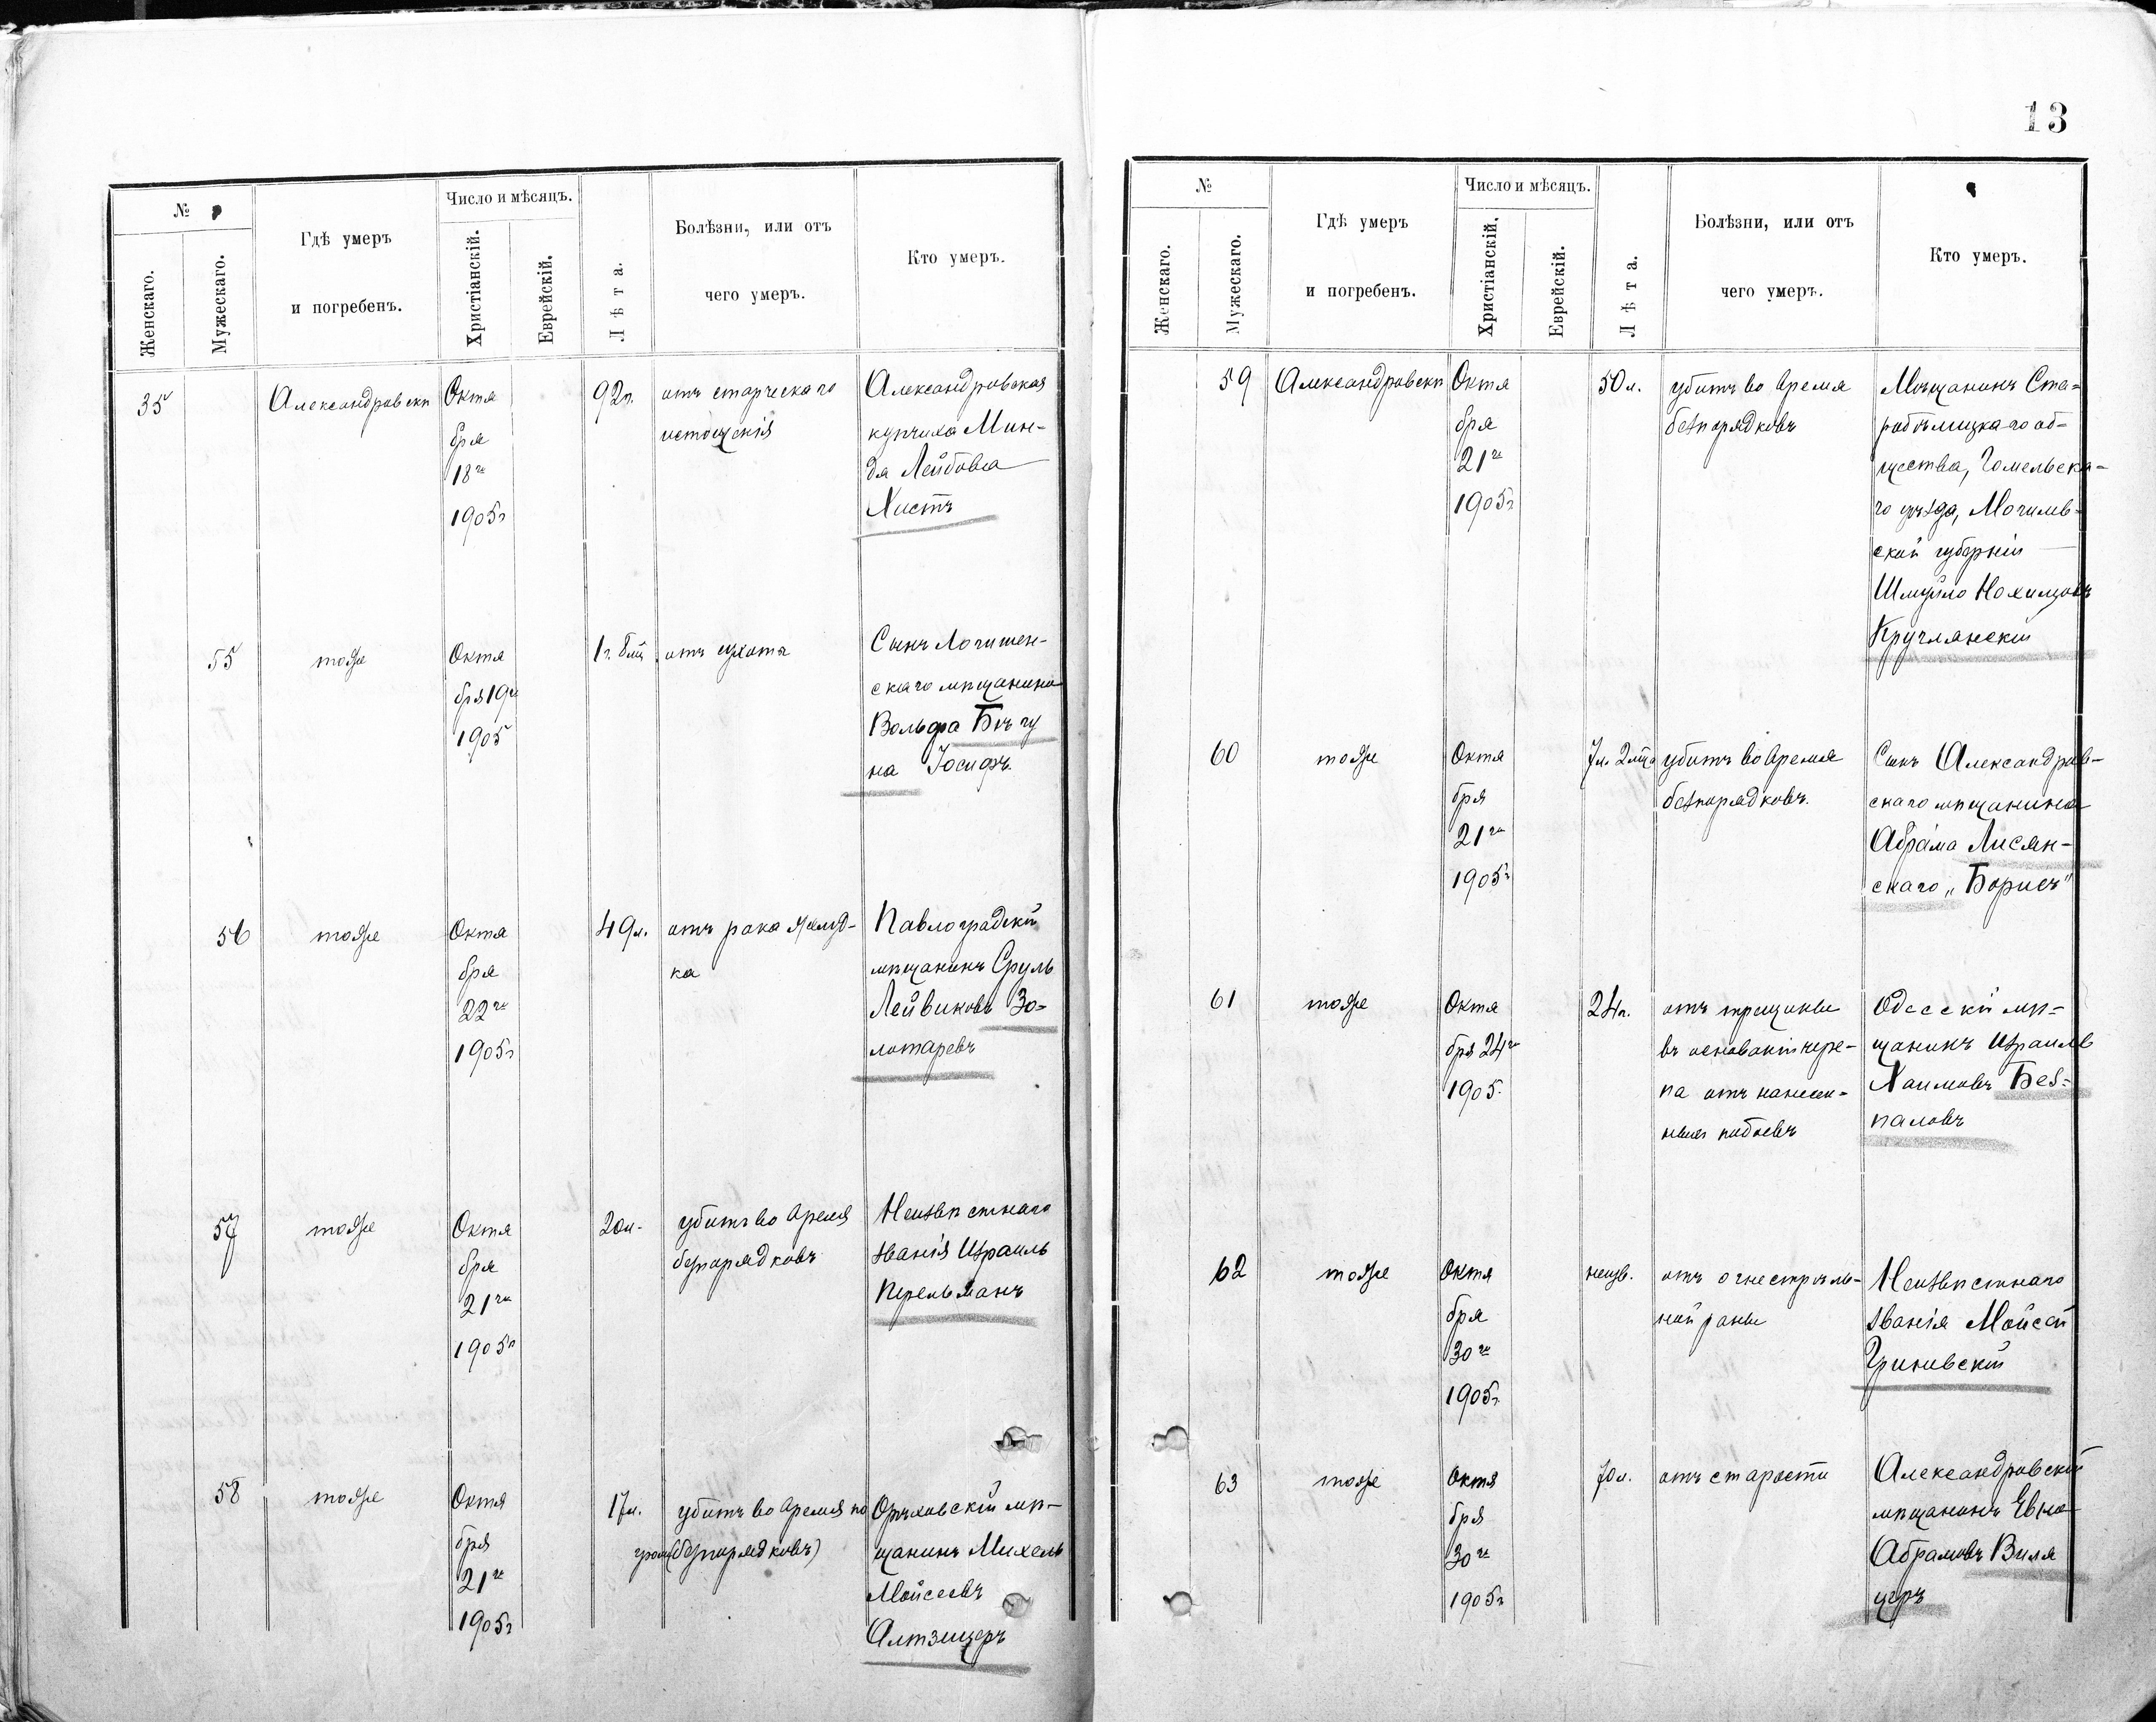 13
№
Женскаго.
Мужескаго.
Гдѣ умеръ
и погребенъ.
Число и мѣсяцъ.
Христіанскій.
Еврейскій.
Лѣта.
Болѣзни, или отъ
чего умеръ.
Кто умеръ.
35
Александровскъ
Октя
бря
18го
1905г
92л.
отъ старческаго
истощенія
Александровская
купчиха Мин-
да Лейбова
Хистъ
55
тоже
Октя
бря 19го
1905
1г. 8мц
отъ
Сынъ Логишен-
скаго мѣщанина
Вольфа Бѣгу
на Іосифъ.
56
тоже
Октя
бря
22го
1905г
49л.
отъ рака желуд-
ка
Павлоградскій
мѣщанинъ Сруль
Лейвиковъ Зо-
лотаревъ
57
тоже
Октя
бря
21го
1905г
20л.
убитъ во время
безпорядковъ
Неизвѣстнаго
званія Израиль
Перельманъ
58
тоже
Октя
бря
21го
1905г
17л.
убитъ во время по
грома (безпорядковъ)
Орѣховскій мѣ-
щанинъ Михель
Мойсеевъ
Алтзицеръ
№
Женскаго.
Мужескаго.
Гдѣ умеръ
и погребенъ.
Число и мѣсяцъ.
Христіанскій.
Еврейскій.
Лѣта.
Болѣзни, или отъ
чего умеръ.
Кто умеръ.
59
Александровскъ
Октя
бря
21го
1905г
50л.
убитъ во время
безпорядковъ
Мѣщанинъ Ста-
робѣлицкаго об-
щества, Гомельска-
го уѣзда, Могилев-
ской губерніи
Шмуйло Нохимовъ
Круглянскій
60
тоже
Октя
бря
21го
1905г
7л. 2мца
убитъ во время
безпорядковъ.
Сынъ Александров-
скаго мѣщанина
Абрама Лисян-
скаго „Борисъ"
61
тоже
Октя
бря 24го
1905.
24л.
отъ трещины
въ основаніи чере-
па отъ нанесен-
ныхъ побоевъ
Одесскій мѣ-
щанинъ Израиль
Хаимовъ Без-
паловъ
62
тоже
Октя
бря
30го
1905г.
неизв.
отъ огнестрѣль-
ной раны
Неизвѣстнаго
званія Мойсей
Гриневскій
63
тоже
Октя
бря
30го
1905г
70л.
отъ старости
Александровскій
мѣщанинъ
Абрамовъ Виля
церъ